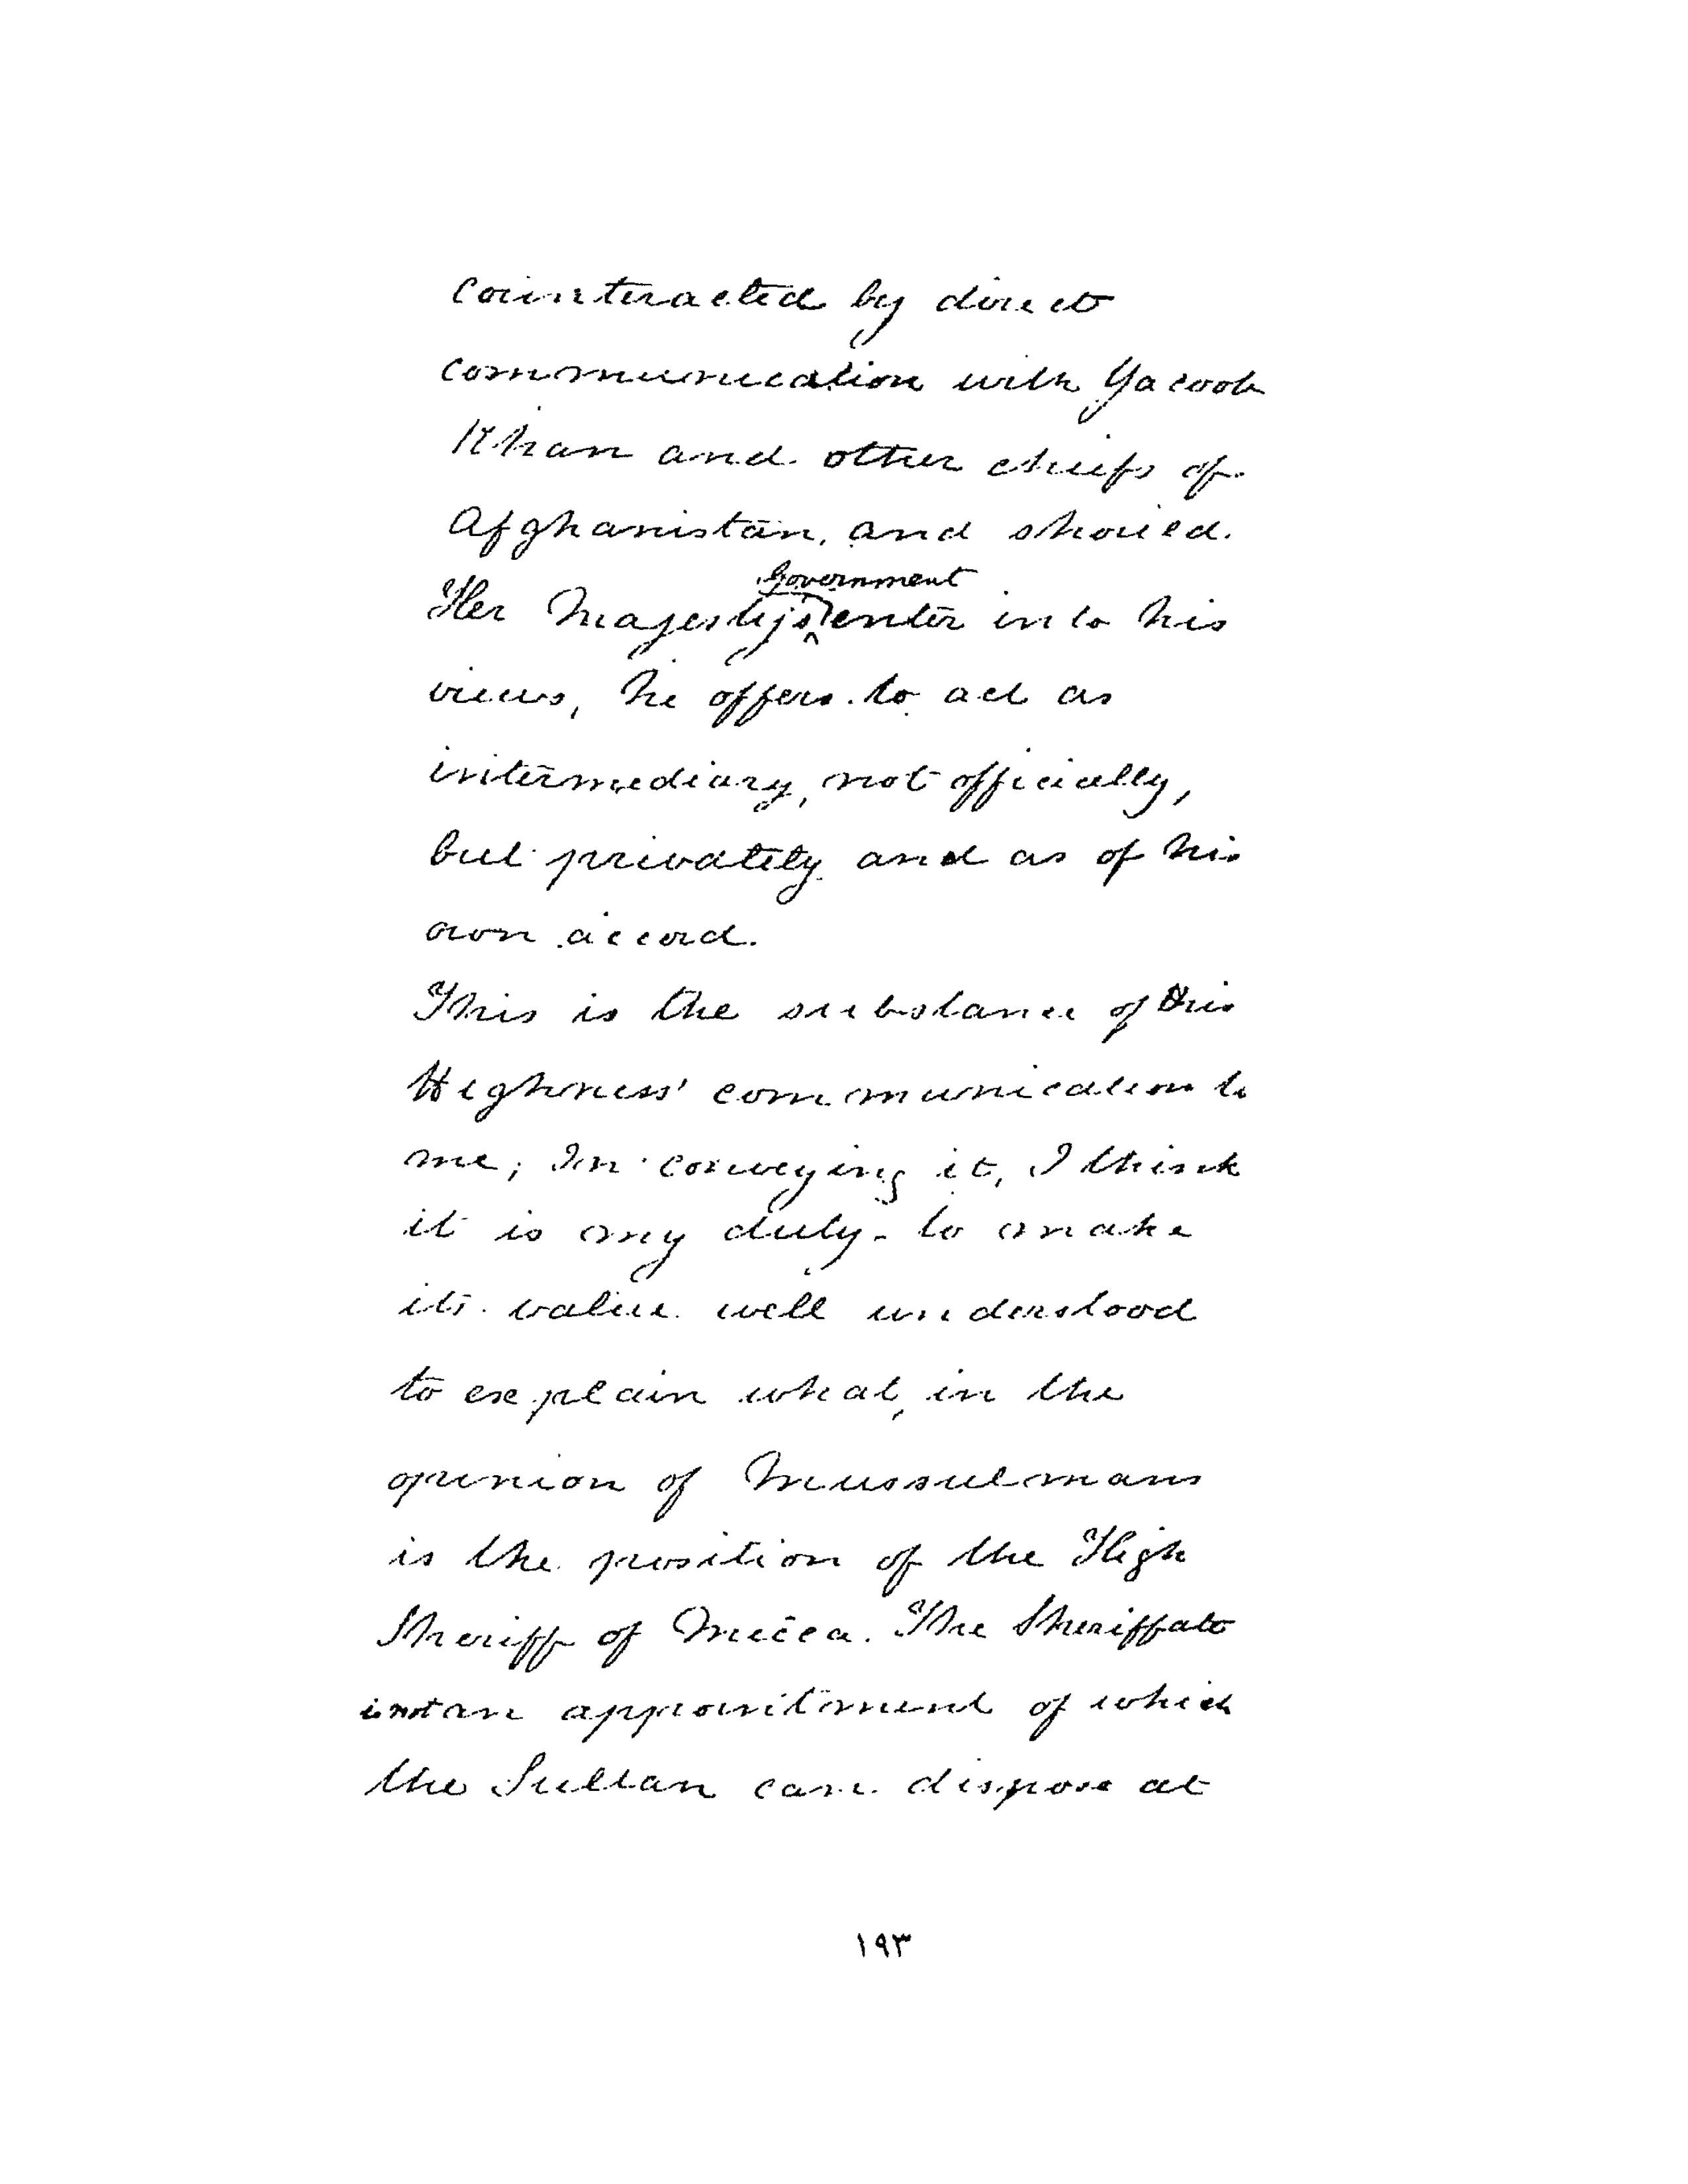 counteracted by direct
communication with Yacoob
Khan and other chiefs of
Afghanistan, and should
Government
Her Majesty's enter into his
views, he offers to act as
intermediary, not officially,
but privately and as of his
own accord.
This is the substance of His
Highness' communication to
me; In conveying it, I think
it is my duty to make
its value well understood
to explain what, in the
opinion of Mussulmans
is the position of the High
Sheriff of Mecca. The Sheriffate
is not an appointment of which
the Sultan can dispose at
١٩٣